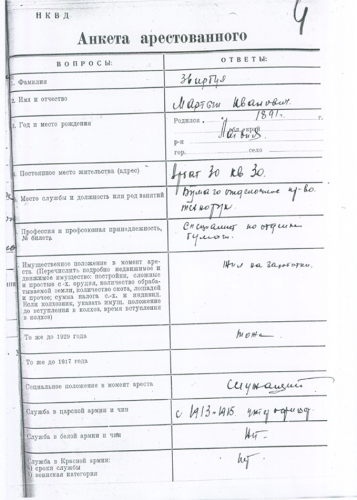 НКВД
4
Анкета арестованного
ВОПРОСЫ: ОТВЕТЫ:
1. Фамилия
2. Имя и отчество Мартын Иванович
3. Год и место рождения Родился 1891 г.
обл., край
р-н
гор. село
4. Постоянное место жительства (адрес) 30 кв 30.
5. Место службы и должность или род занятий
Бумаго отделочное пр-во.
технорук
6. Профессия и профсоюзная принадлежность, № билета Специалист по отделке
бумаги.
7. Имущественное положение в момент аре-
ста. (Перечислить подробно недвижимое и
движимое имущество: постройки, сложные
и простые с.-х. орудия, количество обраба-
тываемой земли, количество скота, лошадей
и прочее; сумма налога с.-х. и индивид.
Если колхозник, указать имущ. положение
до вступления в колхоз, время вступления
в колхоз)
Жил на заработки.
То же до 1929 года тоже
То же до 1917 года
Социальное положение в момент ареста служащий
Служба в царской армии и чин с 1913-1915
Служба в белой армии и чин Нет.
Служба в Красной армии: нет.
а) сроки службы
б) воинская категория